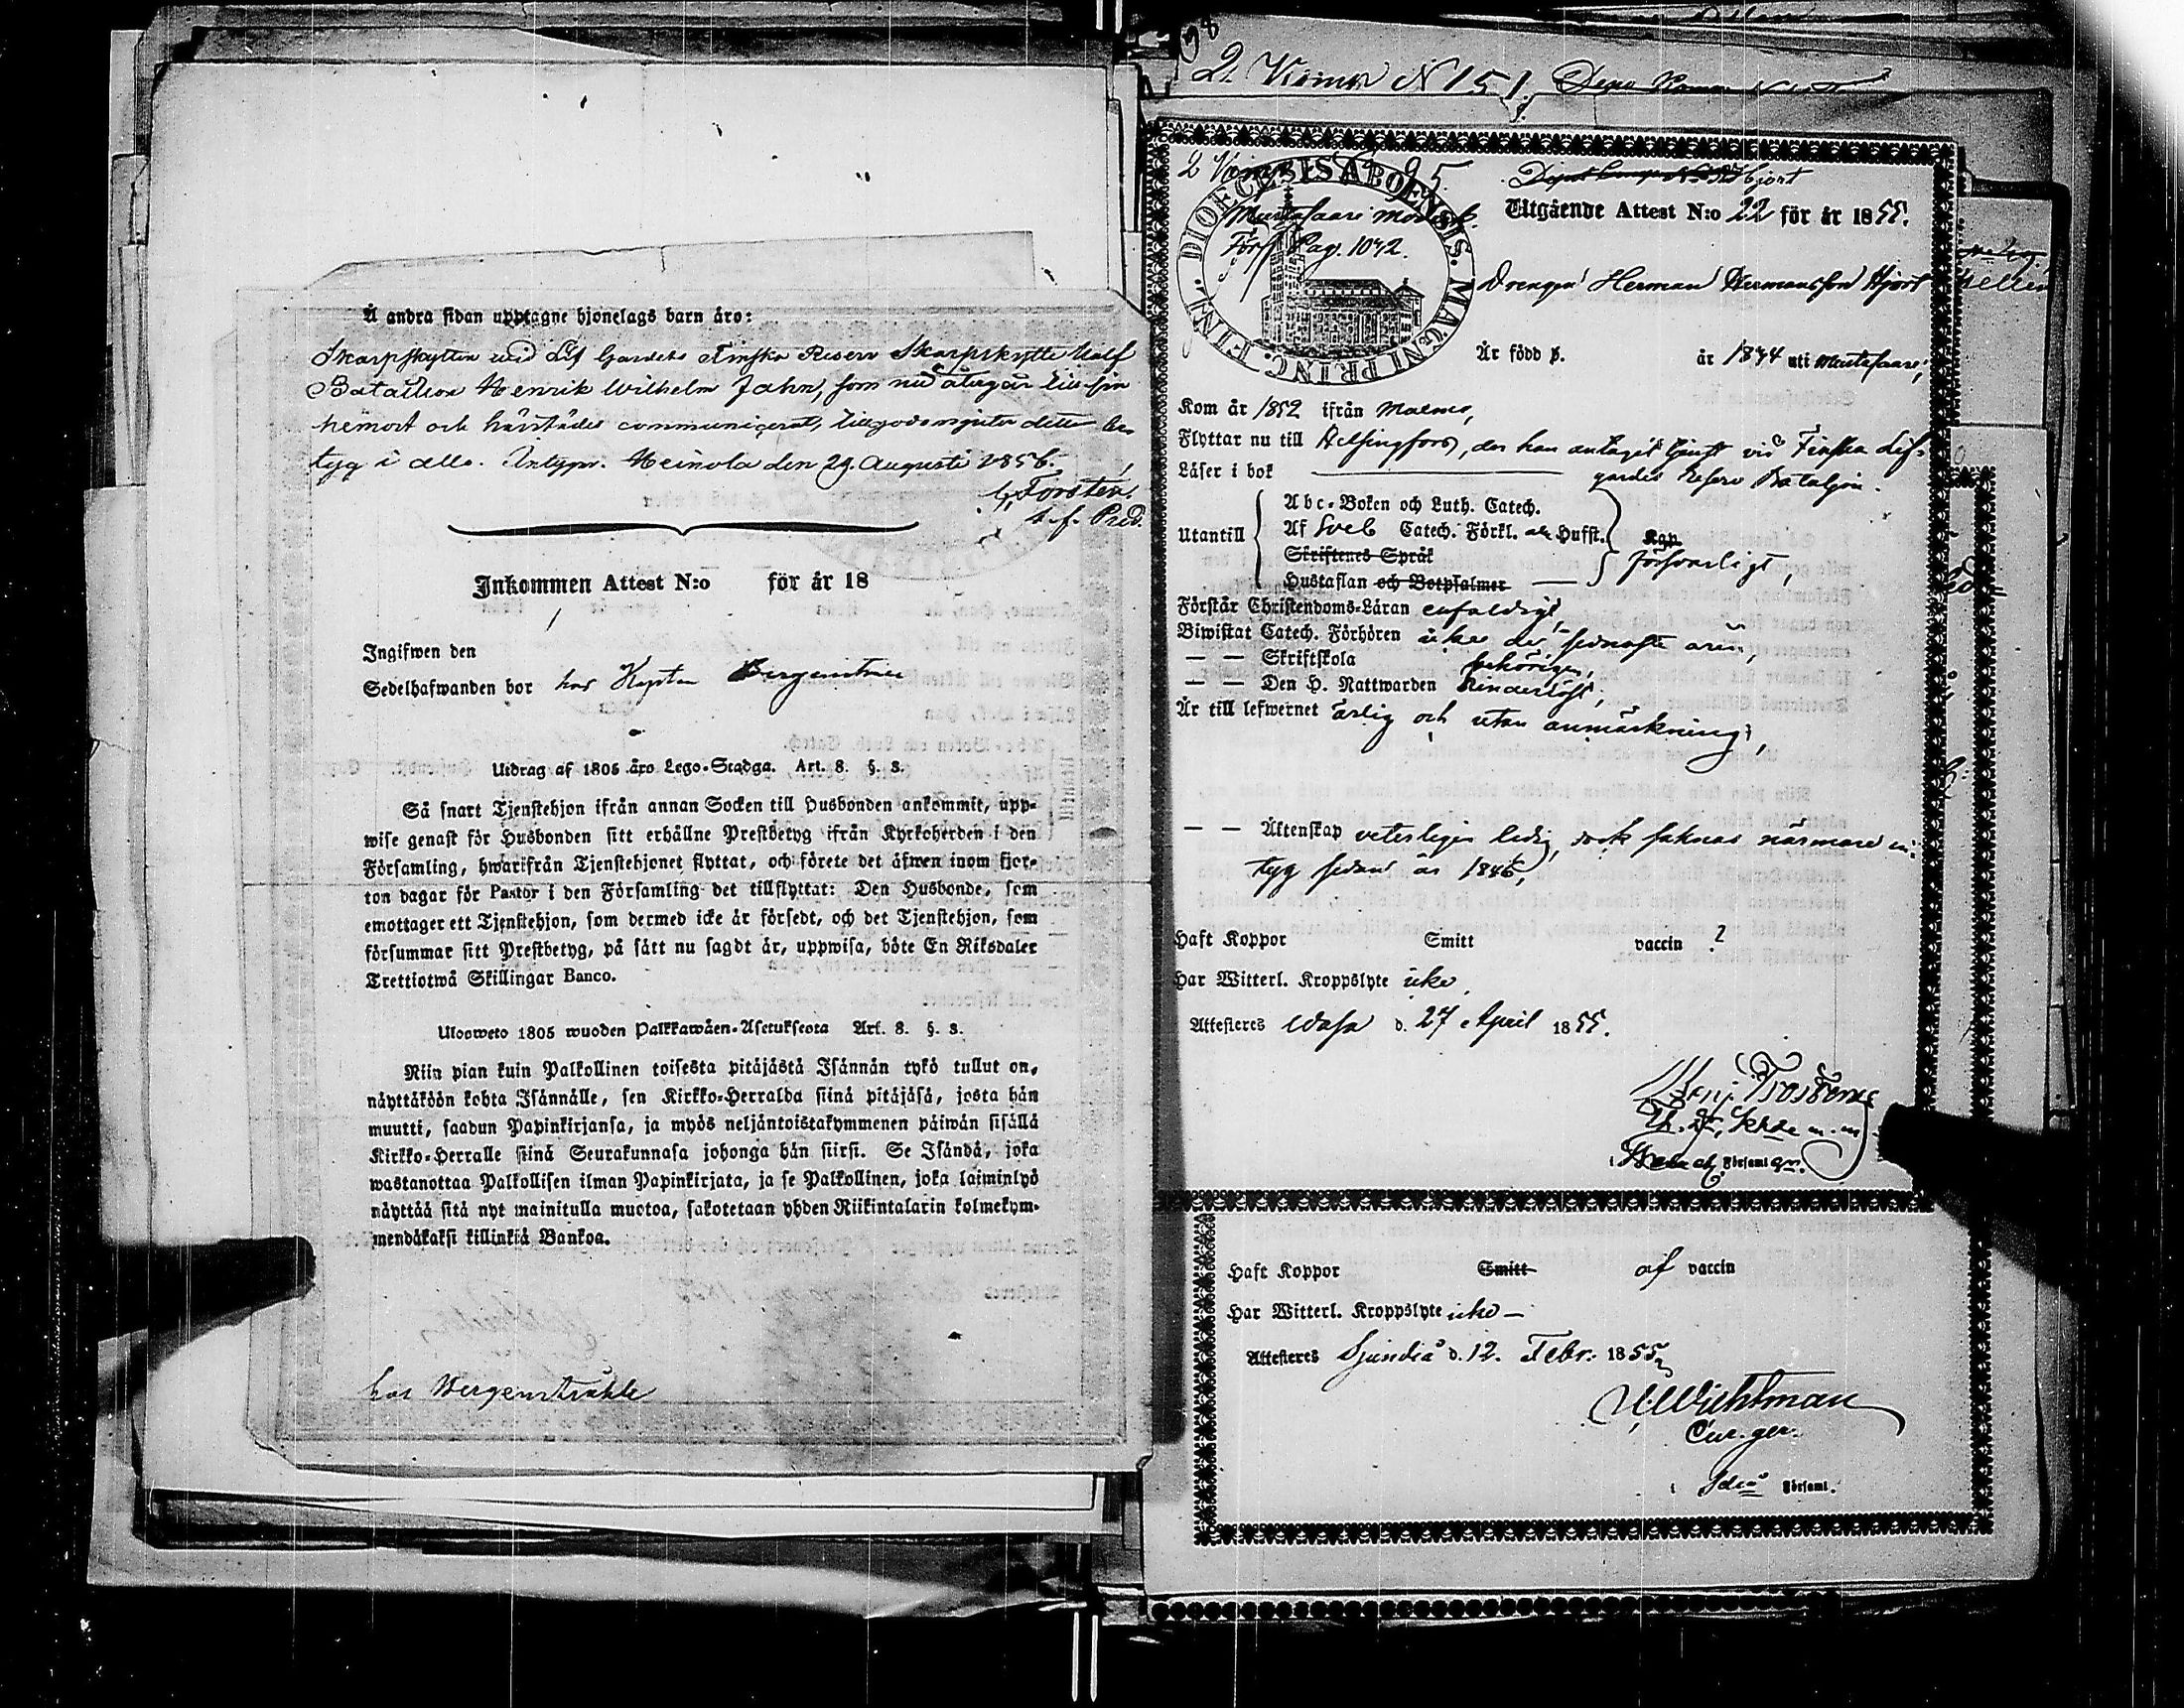 Å andra sidan upptagne hjonelags barn äro:
Skarpskytten wid Lif Gardets Finska Reserv Skarpskytte Half
Bataillon Henrik Wilhelm Jahn, som nu återgår till sin
hemort och härstädes communicerat, tillgodonjuter detta be-
tyg i allo. Intygar. Heinola den 29. Augusti 1856.
Forstén.
t. f. Pred.
Inkommen Attest N:o för år 18
Ingifwen den
Sedelhafwanden bor hos Kapten
Utdrag af 1805 års Lego-Stadga. Art. 8. §. 3.
Så snart Tjenstehjon ifrån annan Socken till Husbonden ankommit, upp-
wise genast för Husbonden sitt erhållne Prestbetyg ifrån Kyrkoherden i den
Församling, hwarifrån Tjenstehjonet flyttat, och förete det äfwen inom fjor-
ton dagar för Pastor i den Församling det tillflyttat: Den Husbonde, som
emottager ett Tjenstehjon, som dermed icke är försedt, och det Tjenstehjon, som
försummar sitt Prestbetyg, på sätt nu sagdt är, uppwisa, böte En Riksdaler
Trettiotwå Skillingar Banco.
Ulosweto 1805 wuoden Palkkawäen-Asetuksesta Art. 8. §. 3.
Niin pian kuin Palkollinen toisesta pitäjästä Isännän tykö tullut on,
näyttäköön kohta Isännälle, sen Kirkko-Herralda siinä pitäjäsä, josta hän
muutti, saadun Papinkirjansa, ja myös neljäntoistakymmenen päiwän sisällä
Kirkko-Herralle siinä Seurakunnasa johonga hän siirsi. Se Isändä, joka
wastanottaa Palkollisen ilman Papinkirjata, ja se Palkollinen, joka laiminlyö
näyttää sitä nyt mainitulla muotoa, sakotetaan yhden Riikintalarin kolmekym-
mendäkaksi killinkiä Bankoa.
hos Bergenstråhle
98
2 Komp N 151
2 Komp 95.
Hjort
DIOECESIS ABOENSIS. MAGNI PRINC. FINL.
Mustasaari
Förs. Pag. 1042.
Utgående Attest N:o 22 för år 1855.
Drengen Herman Hermansson Hjort
Är född d. år 1834 uti Mustasaari,
Kom år 1852 ifrån Malmö,
Flyttar nu till Helsingfors, der han antagit tjenst vid Finska Lif-
gardes Reserv Bataljon.
Läser i bok
Utantill
Abc-Boken och Luth. Catech.
Af Sveb Catech. Förkl. och Husst.
Skriftenes Språk
Hustaflan och Botpsalmer
försvarligt,
Förstår Christendoms-Läran enfaldigt,
Biwistat Catech. Förhören icke de sednaste åren,
— — Skriftskola behörigen,
— — Den H. Nattwarden hinderlöst,
Är till lefwernet ärlig och utan anmärkning,
— — Äktenskap veterligen ledig, dock saknas närmare in-
tyg sedan år 1846,
Haft Koppor Smitt vaccin ?
Har Witterl. Kroppslyte icke,
Attesteres Wasa d. 27 April 1855.
Församl
Haft Koppor Smitt af vaccin
Har Witterl. Kroppslyte icke —
Attesteres Sjundeå d. 12. Febr. 1855
Wichtman
Cur. ger.
i Sdeå Församl.